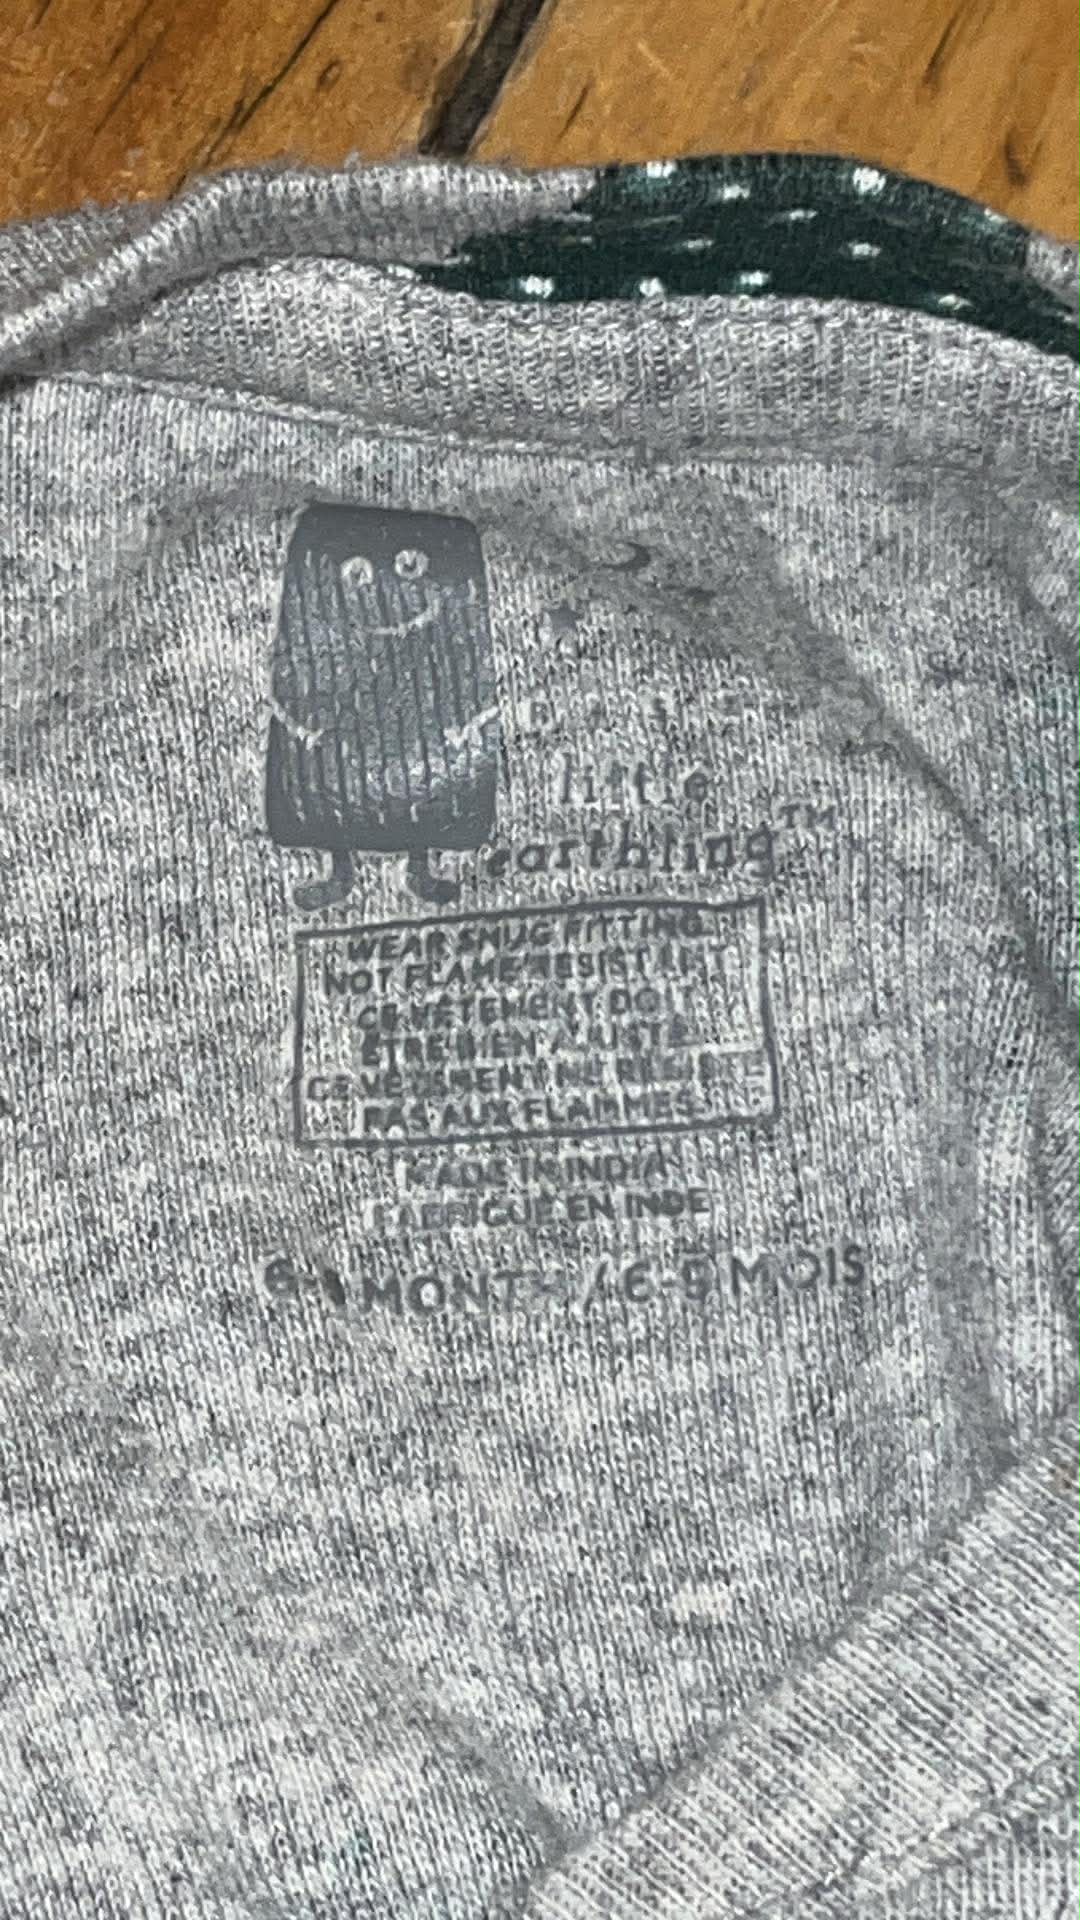 little
earthling™
WEAR SNUG FITTING
NOT FLAME RESISTANT
CE VÊTEMENT DOIT
ÊTRE BIEN AJUSTÉ
CE VÊTEMENT NE RÉSISTE
PAS AUX FLAMMES
MADE IN INDIA
FABRIQUÉ EN INDE
6-9 MONTHS / 6-9 MOIS